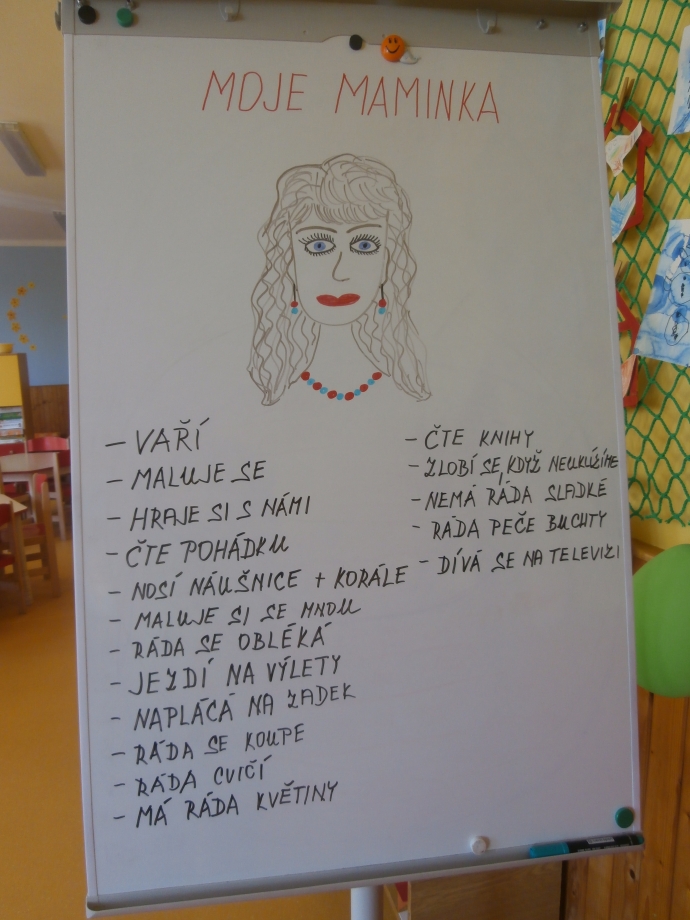 MOJE MAMINKA
– VAŘÍ
– MALUJE SE
– HRAJE SI S NÁMI
– ČTE POHÁDKU
– NOSÍ NÁUŠNICE + KORÁLE
– MALUJE SI SE MNOU
– RÁDA SE OBLÉKÁ
– JEZDÍ NA VÝLETY
– NAPLÁCÁ NA ZADEK
– RÁDA SE KOUPE
– RÁDA CVIČÍ
– MÁ RÁDA KVĚTINY
– ČTE KNIHY
– ZLOBÍ SE, KDYŽ NEUKLÍZÍME
– NEMÁ RÁDA SLADKÉ
– RÁDA PEČE BUCHTY
– DÍVÁ SE NA TELEVIZI